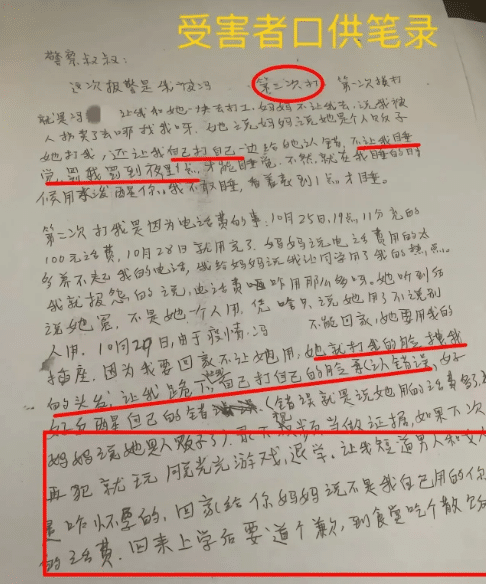 受害者口供笔录
警察叔叔：
这次报警是我被冯 第二次打 第一次被打
就是冯 让我和她一块去打工，妈妈不让我去，说我被
人拐卖了去哪找我呀，她说妈妈说她是个人贩子
她打我，还让我自己打自己一边给她认错，不让我睡
觉，罚我 到夜里1点，才能睡觉，不然就在我睡的时
候用 你，我不敢睡，看着表到1点才睡。
第二次打我是因为电话费的事，10月25日，19点11分充的
100元话费，10月28日就用完了，妈妈说电话费用的太
多养不起我的电话，我给妈妈说我让同学用了我的
我就报怨的说，电话费 咋用那么多呀。她听到后
说她冤，不是她一个人用，凭啥只说她用了不说别
人用。10月29日，由于疫情，冯 不能回家，她要用我的
插座，因为我要回家不让她用，她就打我的脸，揪我
的头发，让我跪下，自己打自己的脸再认错误，
自己的错 (错误就是说她用的话费多，
妈妈说她是人贩子) 当做证据，如果下次
再犯就玩 脱光光游戏，退学，让我知道男人和女人
是咋 的，回家给你妈妈说不是我自己用的你
的话费，回来上学后要道个歉，到食堂吃个散伙饭